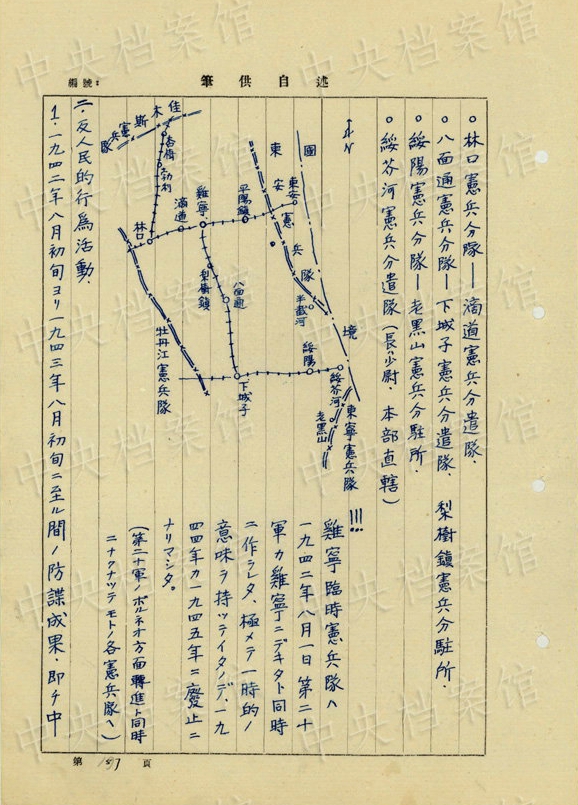 編號:
述自供筆
○林口憲兵分隊——滴道憲兵分遣隊.
○八面通憲兵分隊——下城子憲兵分遣隊、梨樹鎮憲兵分駐所.
○綏陽憲兵分隊——老黑山憲兵分駐所.
○綏芬河憲兵分遣隊(長少尉.本部直轄)
N
國
境
東
安
憲
兵
隊
東安
半截河
平陽鎮
雞寧
滴道
林口
勃利
杏樹
佳
木
斯
憲
兵
隊
梨樹鎮
八面通
綏陽
綏芬河
下城子
老黑山
東寧憲兵隊
牡丹江憲兵隊
雞寧臨時憲兵隊ハ
一九四二年八月一日第二十
軍カ雞寧ニデキタト同時
ニ作ラレタ、極メテ一時的ノ
意味ヲ持ッテイタノデ、一九
四四年カ一九四五年ニ廢止ニ
ナリマシタ。
(第二十軍ノボルネオ方面轉進ト同時
ニナクナッテモトノ各憲兵隊ヘ)
二.反人民的行為活動、
1.一九四二年八月初旬ヨリ一九四三年八月初旬ニ至ル間ノ防諜成果.即チ中
第 197 頁
中央档案馆